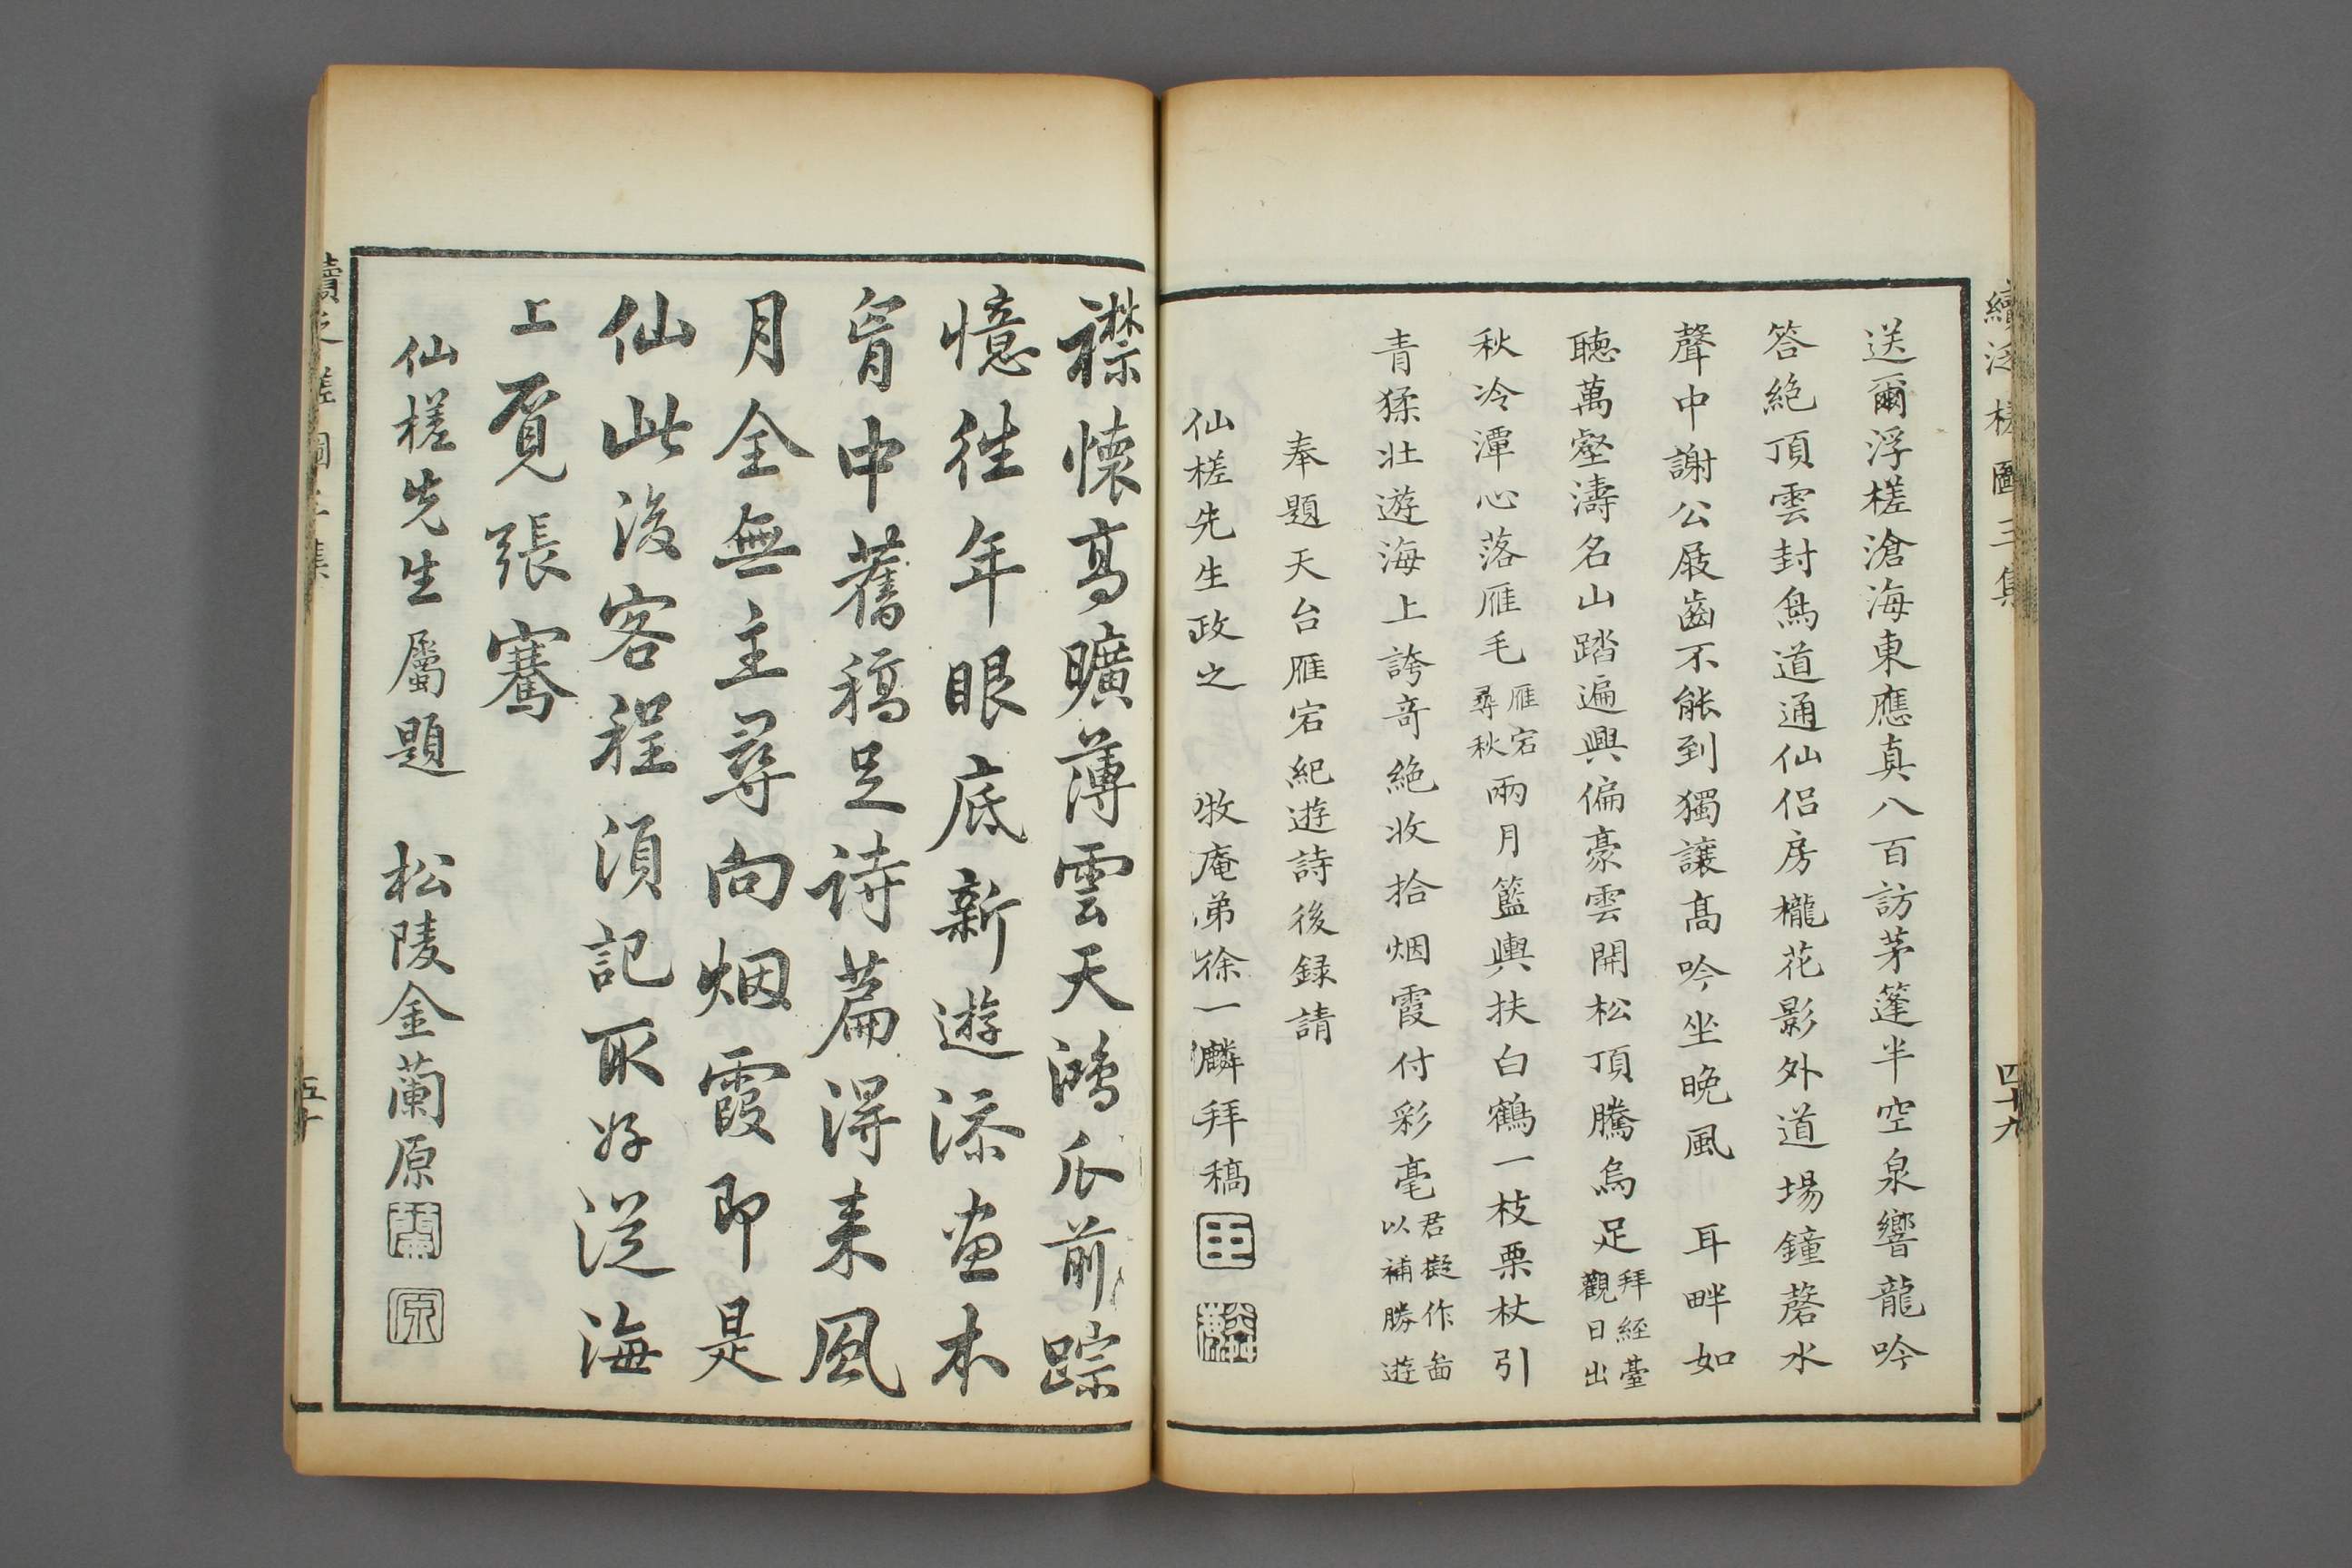 續泛槎圖三集
四十九
送爾浮槎滄海東應真八百訪茅蓬半空泉響龍吟
答絶頂雲封鳥道通仙侣房櫳花影外道場鐘磬水
聲中謝公屐齒不能到獨讓髙吟坐晚風 耳畔如
聴萬壑濤名山踏遍興偏豪雲開松頂騰烏足拜經臺
觀日出
秋冷潭心落雁毛雁宕
尋秋兩月籃輿扶白鶴一枝栗杖引
青猱壮遊海上誇奇絶收拾烟霞付彩毫君擬作啚
以補勝遊
奉題天台雁宕紀遊詩後録請
仙槎先生政之 牧庵弟徐一麟拜稿
襟懐高曠薄雲天鴻爪前踪
憶往年眼底新遊添畫本
胷中舊稿足詩篇得来風
月全無主尋向烟霞即是
仙此後客程須記取好從海
上覓張騫
仙槎先生屬題 松陵金蘭原
蘭
原
續泛槎圖三集
五十